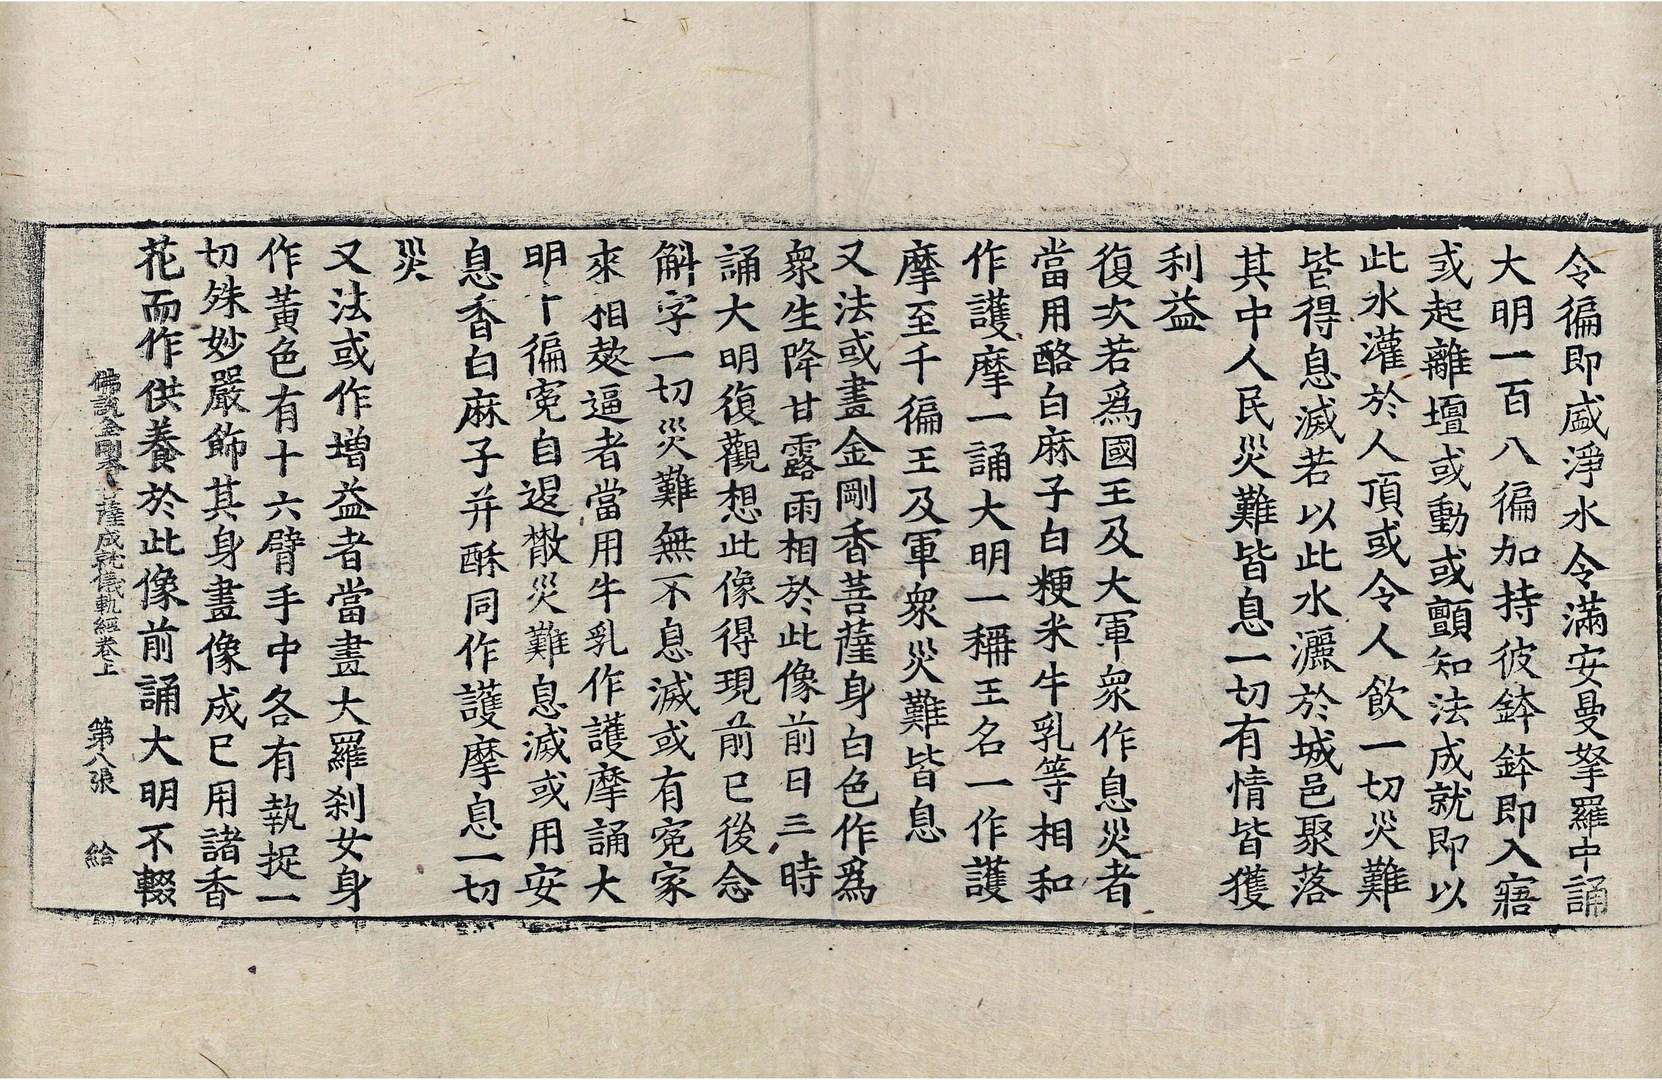 令徧即盛淨水令滿安曼拏羅中誦
大明一百八徧加持彼鉢鉢即入寤
或起離壇或動或顫知法成就即以
此水灌於人頂或令人飲一切災難
皆得息滅若以此水灑於城邑聚落
其中人民災難皆息一切有情皆獲
利益
復次若爲國王及大軍衆作息災者
當用酪白麻子白粳米牛乳等相和
作護摩一誦大明一稱王名一作護
摩至千徧王及軍衆災難皆息
又法或畫金剛香菩薩身白色作爲
衆生降甘露雨相於此像前日三時
誦大明復觀想此像得現前已後念
斛字一切災難無不息滅或有寃家
來相逼者當用牛乳作護摩誦大
明十徧寃自退散災難息滅或用安
息香白麻子并酥同作護摩息一切
災
又法或作增益者當畫大羅刹女身
作黃色有十六臂手中各有執捉一
切殊妙嚴飾其身畫像成已用諸香
花而作供養於此像前誦大明不輟
佛說金剛香菩薩成就儀軌經卷上 第八張 給